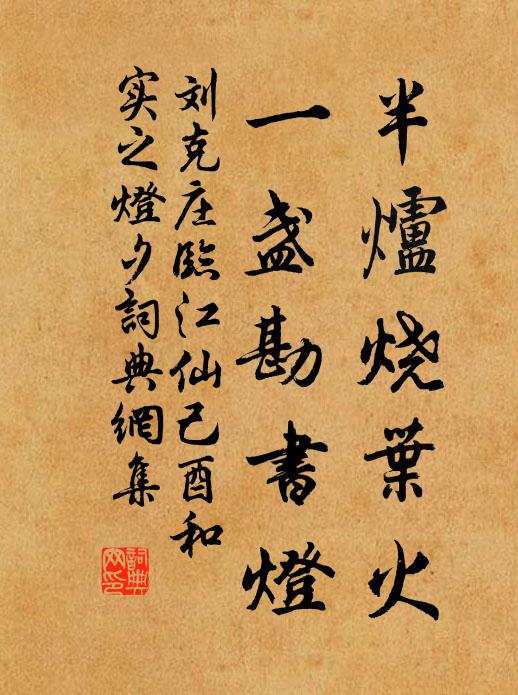 半爐烧葉火
一盏勘書燈
刘克庄臨江仙己酉和
实之燈夕詞典網集
詞典
网印